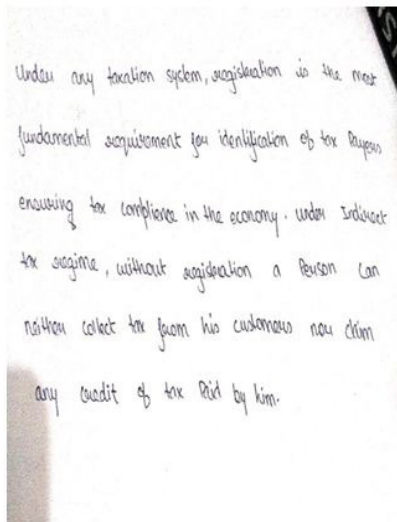 Under any taxation system, registration is the most
fundamental requirement for identification of tax Payers
ensuring tax compliance in the economy. under Indirect
tax regime, without registration a Person Can
neither collect tax from his customers nor claim
any credit of tax Paid by him.